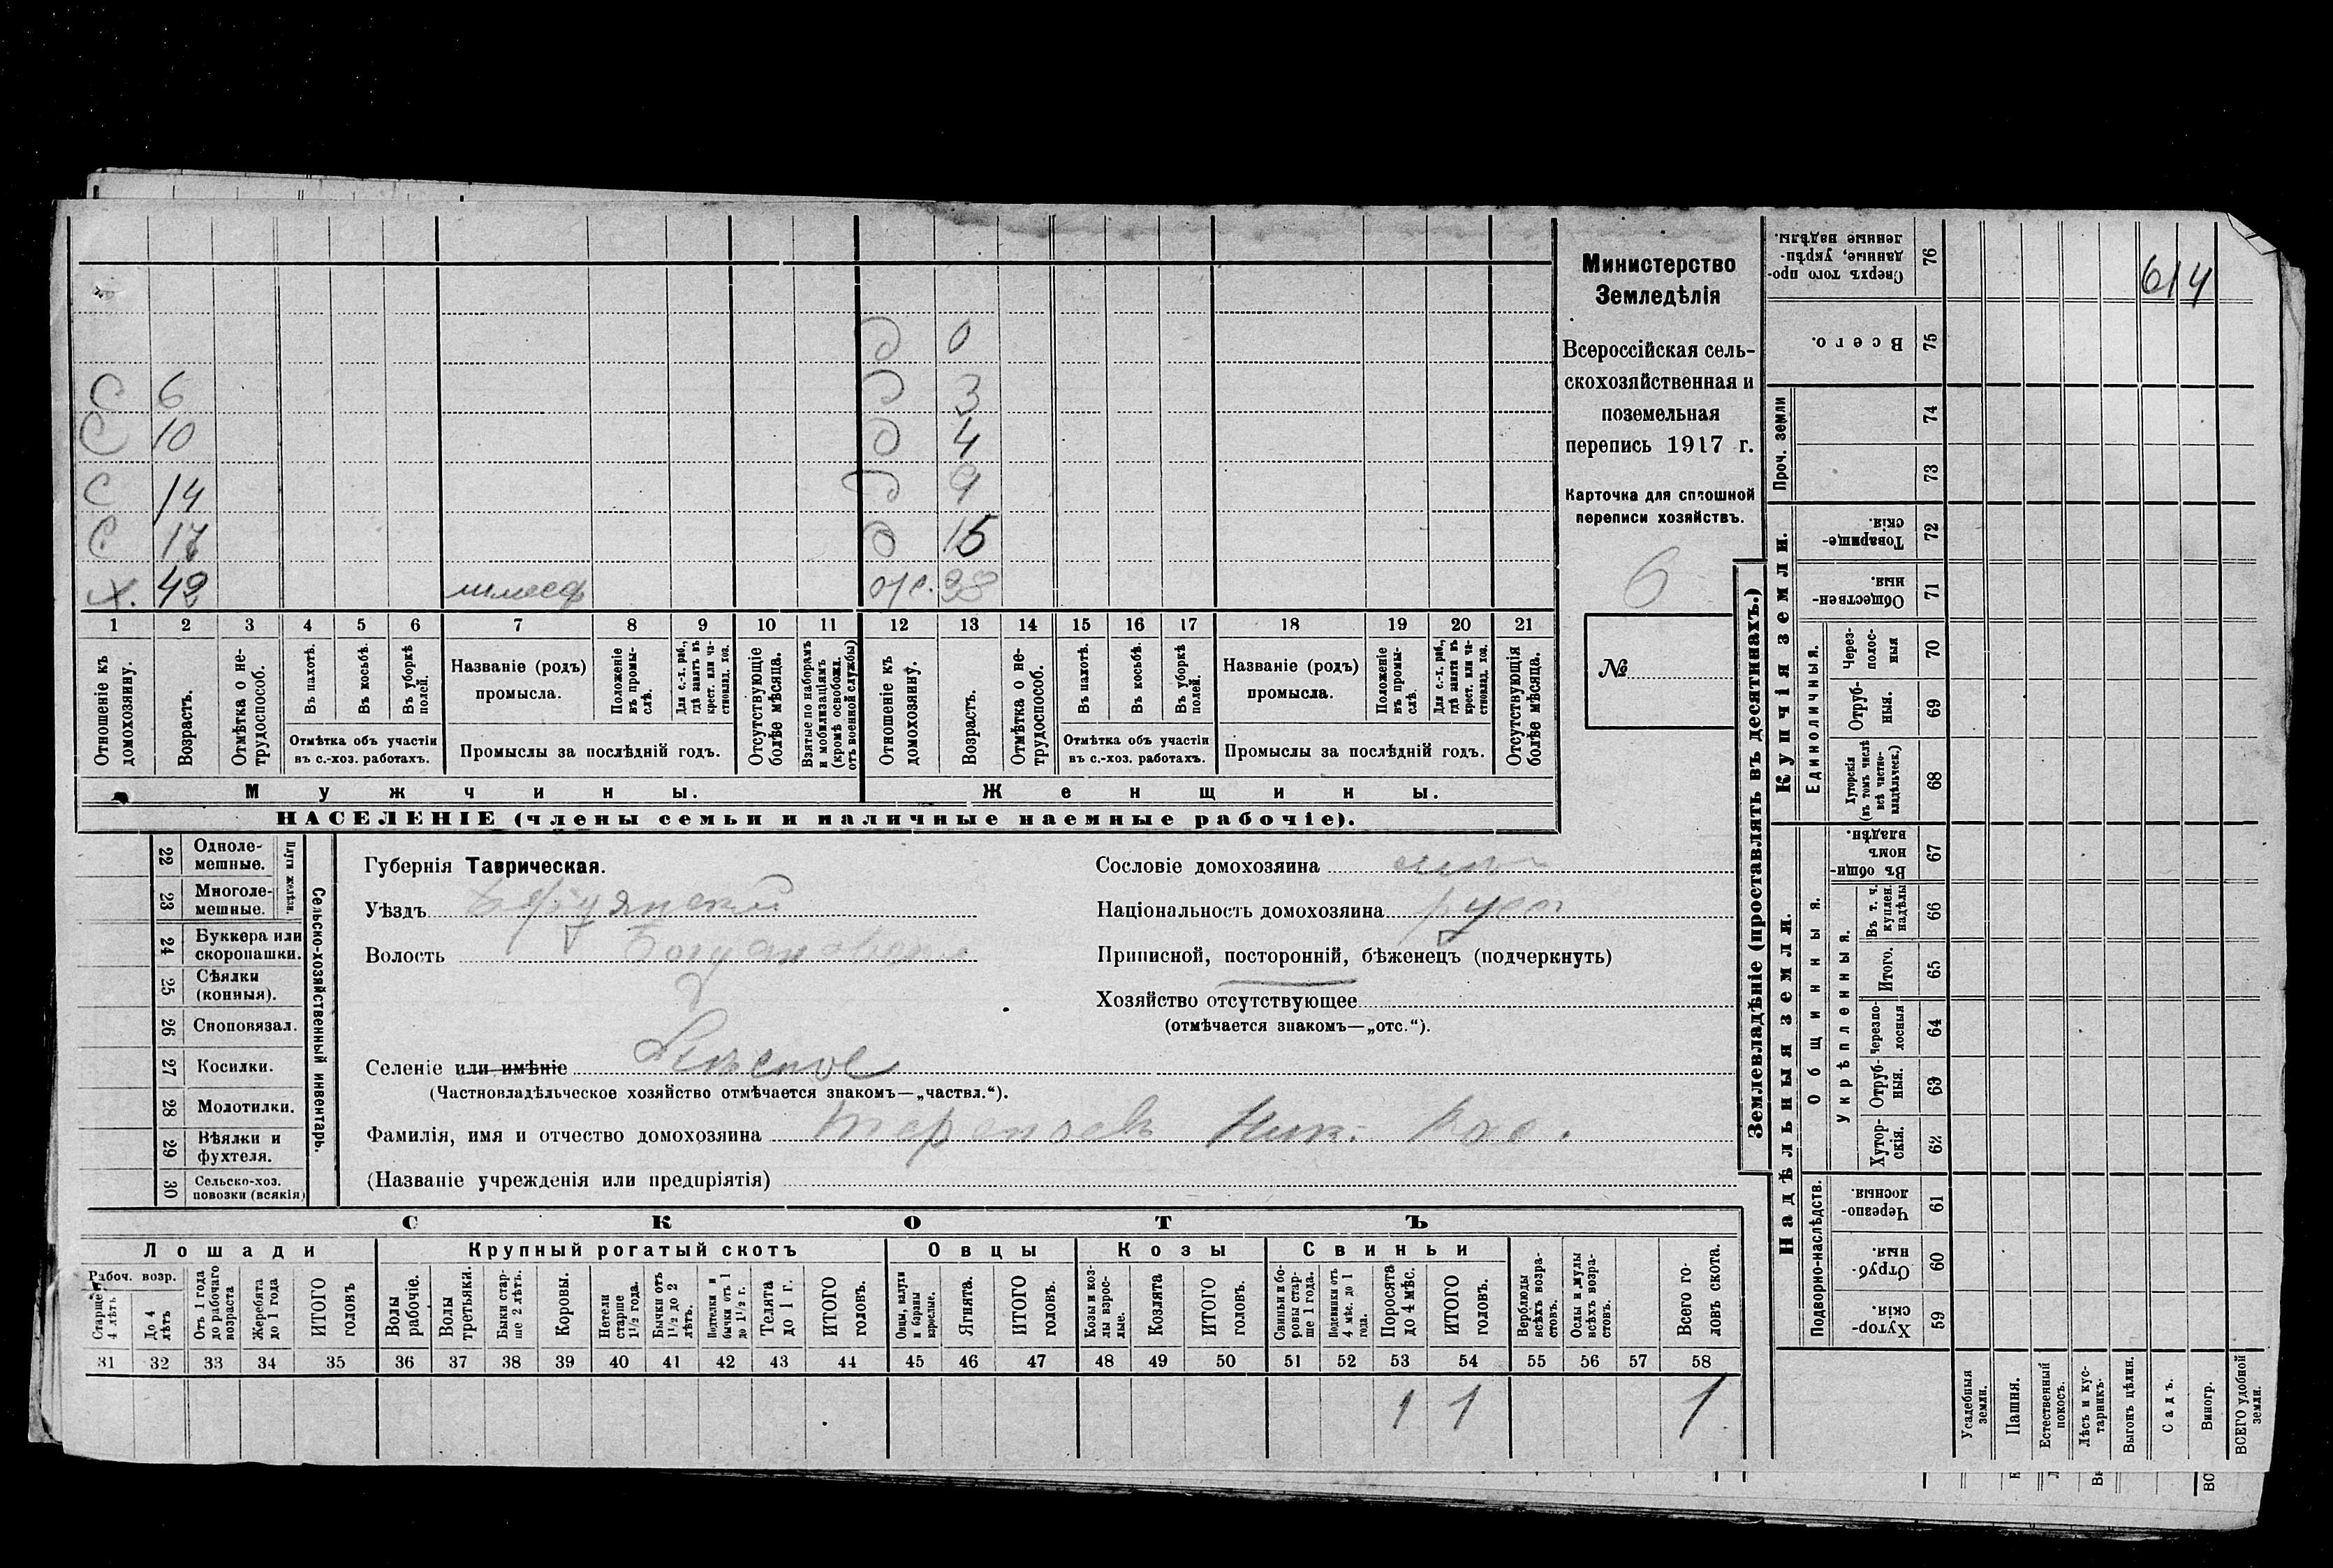 614
Министерство
Земледѣлія
Всероссійская сель-
скохозяйственная и
поземельная
перепись 1917 г.
Карточка для сплошной
переписи хозяйствъ.
6
№
д 0
С 6 д 3
С 10 д 4
С 14 д 9
С 17 д 15
х. 42 ж. 38
1 2 3 4 5 6 7 8 9 10 11 12 13 14 15 16 17 18 19 20 21
Отношеніе къ домохозяину.
Возрастъ.
Отмѣтка о не-трудоспособ.
Въ пахотѣ.
Въ косьбѣ.
Въ уборкѣ полей.
Отмѣтка объ участіи
въ с.-хоз. работахъ.
Названіе (родъ)
промысла.
Положеніе въ промы-слѣ.
Для с.-х. раб., гдѣ занятъ въ крест. или ча-стновлад. хоз.
Промыслы за послѣдній годъ.
Отсутствующіе болѣе мѣсяца.
Взятые по наборамъ и мобилизаціямъ (кромѣ освобожд. отъ военной службы)
Отношеніе къ домохозяину.
Возрастъ.
Отмѣтка о не-трудоспособ.
Въ пахотѣ.
Въ косьбѣ.
Въ уборкѣ полей.
Отмѣтка объ участіи
въ с.-хоз. работахъ.
Названіе (родъ)
промысла.
Положеніе въ промы-слѣ.
Для с.-х. раб., гдѣ занята въ крест. или ча-стновлад. хоз.
Промыслы за послѣдній годъ.
Отсутствующія болѣе мѣсяца.
Мужчины. Женщины.
НАСЕЛЕНІЕ (члены семьи и наличные наемные рабочіе).
Сельско-хозяйственный инвентарь.
Плуги желѣзн.
22 Одноле-мешные.
23 Многоле-мешные.
24 Буккера или скоропашки.
25 Сѣялки (конныя).
26 Сноповязал.
27 Косилки.
28 Молотилки.
29 Вѣялки и фухтеля.
30 Сельско-хоз. повозки (всякія)
Губернія Таврическая.
Уѣздъ Бердянскій
Волость
Селеніе или имѣніе
(Частновладѣльческое хозяйство отмѣчается знакомъ—„частвл.“).
Фамилія, имя и отчество домохозяина Ник.
(Названіе учрежденія или предпріятія)
Сословіе домохозяина
Національность домохозяина русс
Приписной, посторонній, бѣженецъ (подчеркнуть)
Хозяйство отсутствующее
(отмѣчается знакомъ—„отс.“).
СКОТЪ
Лошади Крупный рогатый скотъ Овцы Козы Свиньи
Рабоч. возр.
Старше 4 лѣтъ
До 4 лѣтъ
Отъ 1 года до рабочаго возраста
Жеребята до 1 года
ИТОГО головъ
Волы рабочіе.
Волы третьяки.
Быки стар-ше 2 лѣтъ.
Коровы.
Нетели старше 1½ года.
Бычки отъ 1½ до 2 лѣтъ.
Подтелки и бычки отъ 1 до 1½ г.
Телята до 1 г.
ИТОГО головъ.
Овцы, валухи и бараны взрослые.
Ягнята.
ИТОГО головъ.
Козы и коз-лы взрос-лые.
Козлята
ИТОГО головъ.
Свиньи и бо-ровы стар-ше 1 года.
Подсвинки отъ 4 мѣс. до 1 года.
Поросята до 4 мѣс.
ИТОГО головъ.
Верблюды всѣхъ возра-стовъ.
Ослы и мулы всѣхъ возра-стовъ.
Всего го-ловъ скота.
31 32 33 34 35 36 37 38 39 40 41 42 43 44 45 46 47 48 49 50 51 52 53 54 55 56 57 58
1 1 1
Землевладѣніе (проставлять въ десятинахъ.)
Надѣльныя земли. Купчія земли. Проч. земли
Подворно-наслѣдств. Общинныя. Единоличныя.
Укрѣпленныя.
59 Хутор-скія.
60 Отруб-ныя.
61 Черезпо-лосныя
62 Хутор-скія.
63 Отруб-ныя.
64 Черезпо-лосныя
65 Итого.
66 Въ т. ч. куплен. надѣлы
67 Въ общин-номъ владѣн.
68 Хуторскія (въ томъ числѣ всѣ частно-владѣльческ.)
69 Отруб-ныя.
70 Черезполос-ныя
71 Обществен-ныя.
72 Товарище-скія.
73
74
75 Всего.
76 Сверхъ того про-данные, укрѣп-ленные надѣлы.
Усадебныя земли.
Пашня.
Естественный покосъ.
Лѣсъ и кус-тарникъ.
Выгонъ цѣлин.
Садъ.
Виногр.
ВСЕГО удобной земли.